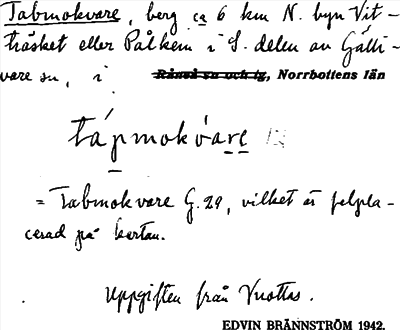 Tabmokvare, berg ca 6 km N. byn Vit-
träsket eller Pålkem i S. delen av Gälli-
vare sn, i Råneå sn och tg, Norrbottens län
tápmokv́are
= Tabmokvare G. 29, vilket är felpla-
cerad på kartan.
Uppgiften från Vuottas.
EDVIN BRÄNNSTRÖM 1942.